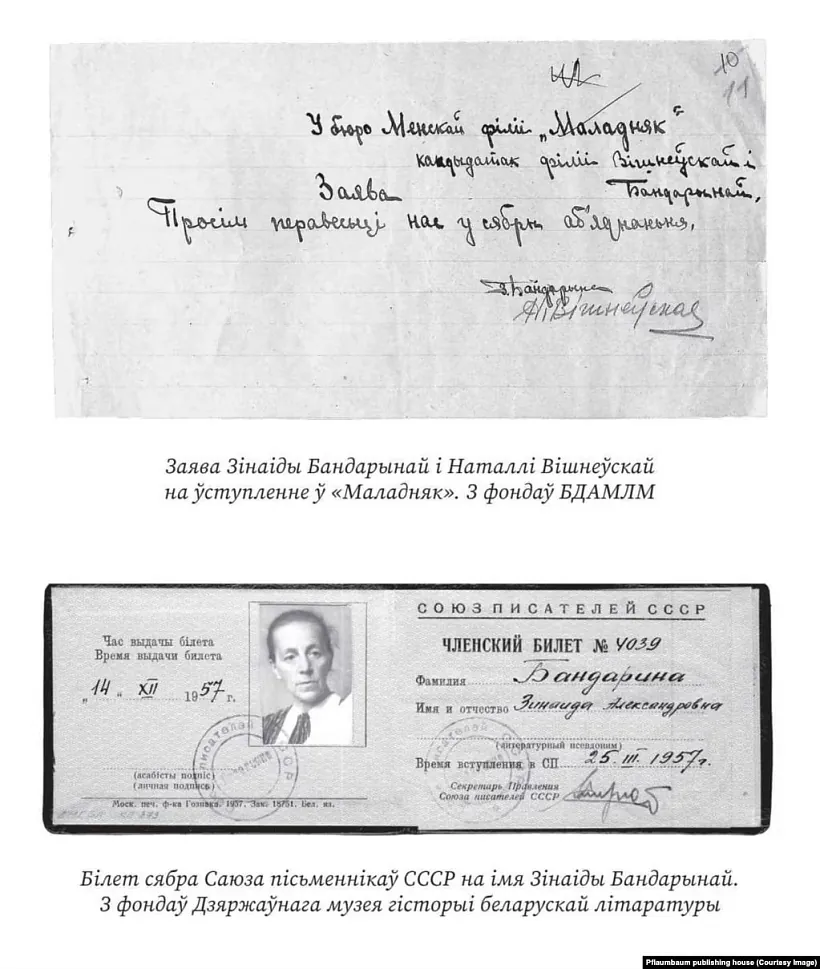 10
11
У бюро Менскай філіі „Маладняк“
кандыдатак філіі Вішнеўскай і
Бандарынай.
Заява
Просім перавесьці нас у сябры аб'яднаньня.
З. Бандарына
Н. Вішнеўская
Заява Зінаіды Бандарынай і Наталлі Вішнеўскай
на ўступленне ў «Маладняк». З фондаў БДАМЛМ
Час выдачы білета
Время выдачи билета
„14“ XII 1957 г.
(асабісты подпіс)
(личная подпись)
Моск. печ. ф-ка Гознака. 1957. Зак. 18751. Бел. яз.
СОЮЗ ПИСАТЕЛЕЙ СССР
ЧЛЕНСКИЙ БИЛЕТ № 4039
Фамилия Бандарина
Имя и отчество Зинаида Александровна
(литературный псевдоним)
Время вступления в СП 25. III. 1957 г.
Секретарь Правления
Союза писателей СССР
Білет сябра Саюза пісьменнікаў СССР на імя Зінаіды Бандарынай.
З фондаў Дзяржаўнага музея гісторыі беларускай літаратуры
Pflaumbaum publishing house (Courtesy Image)